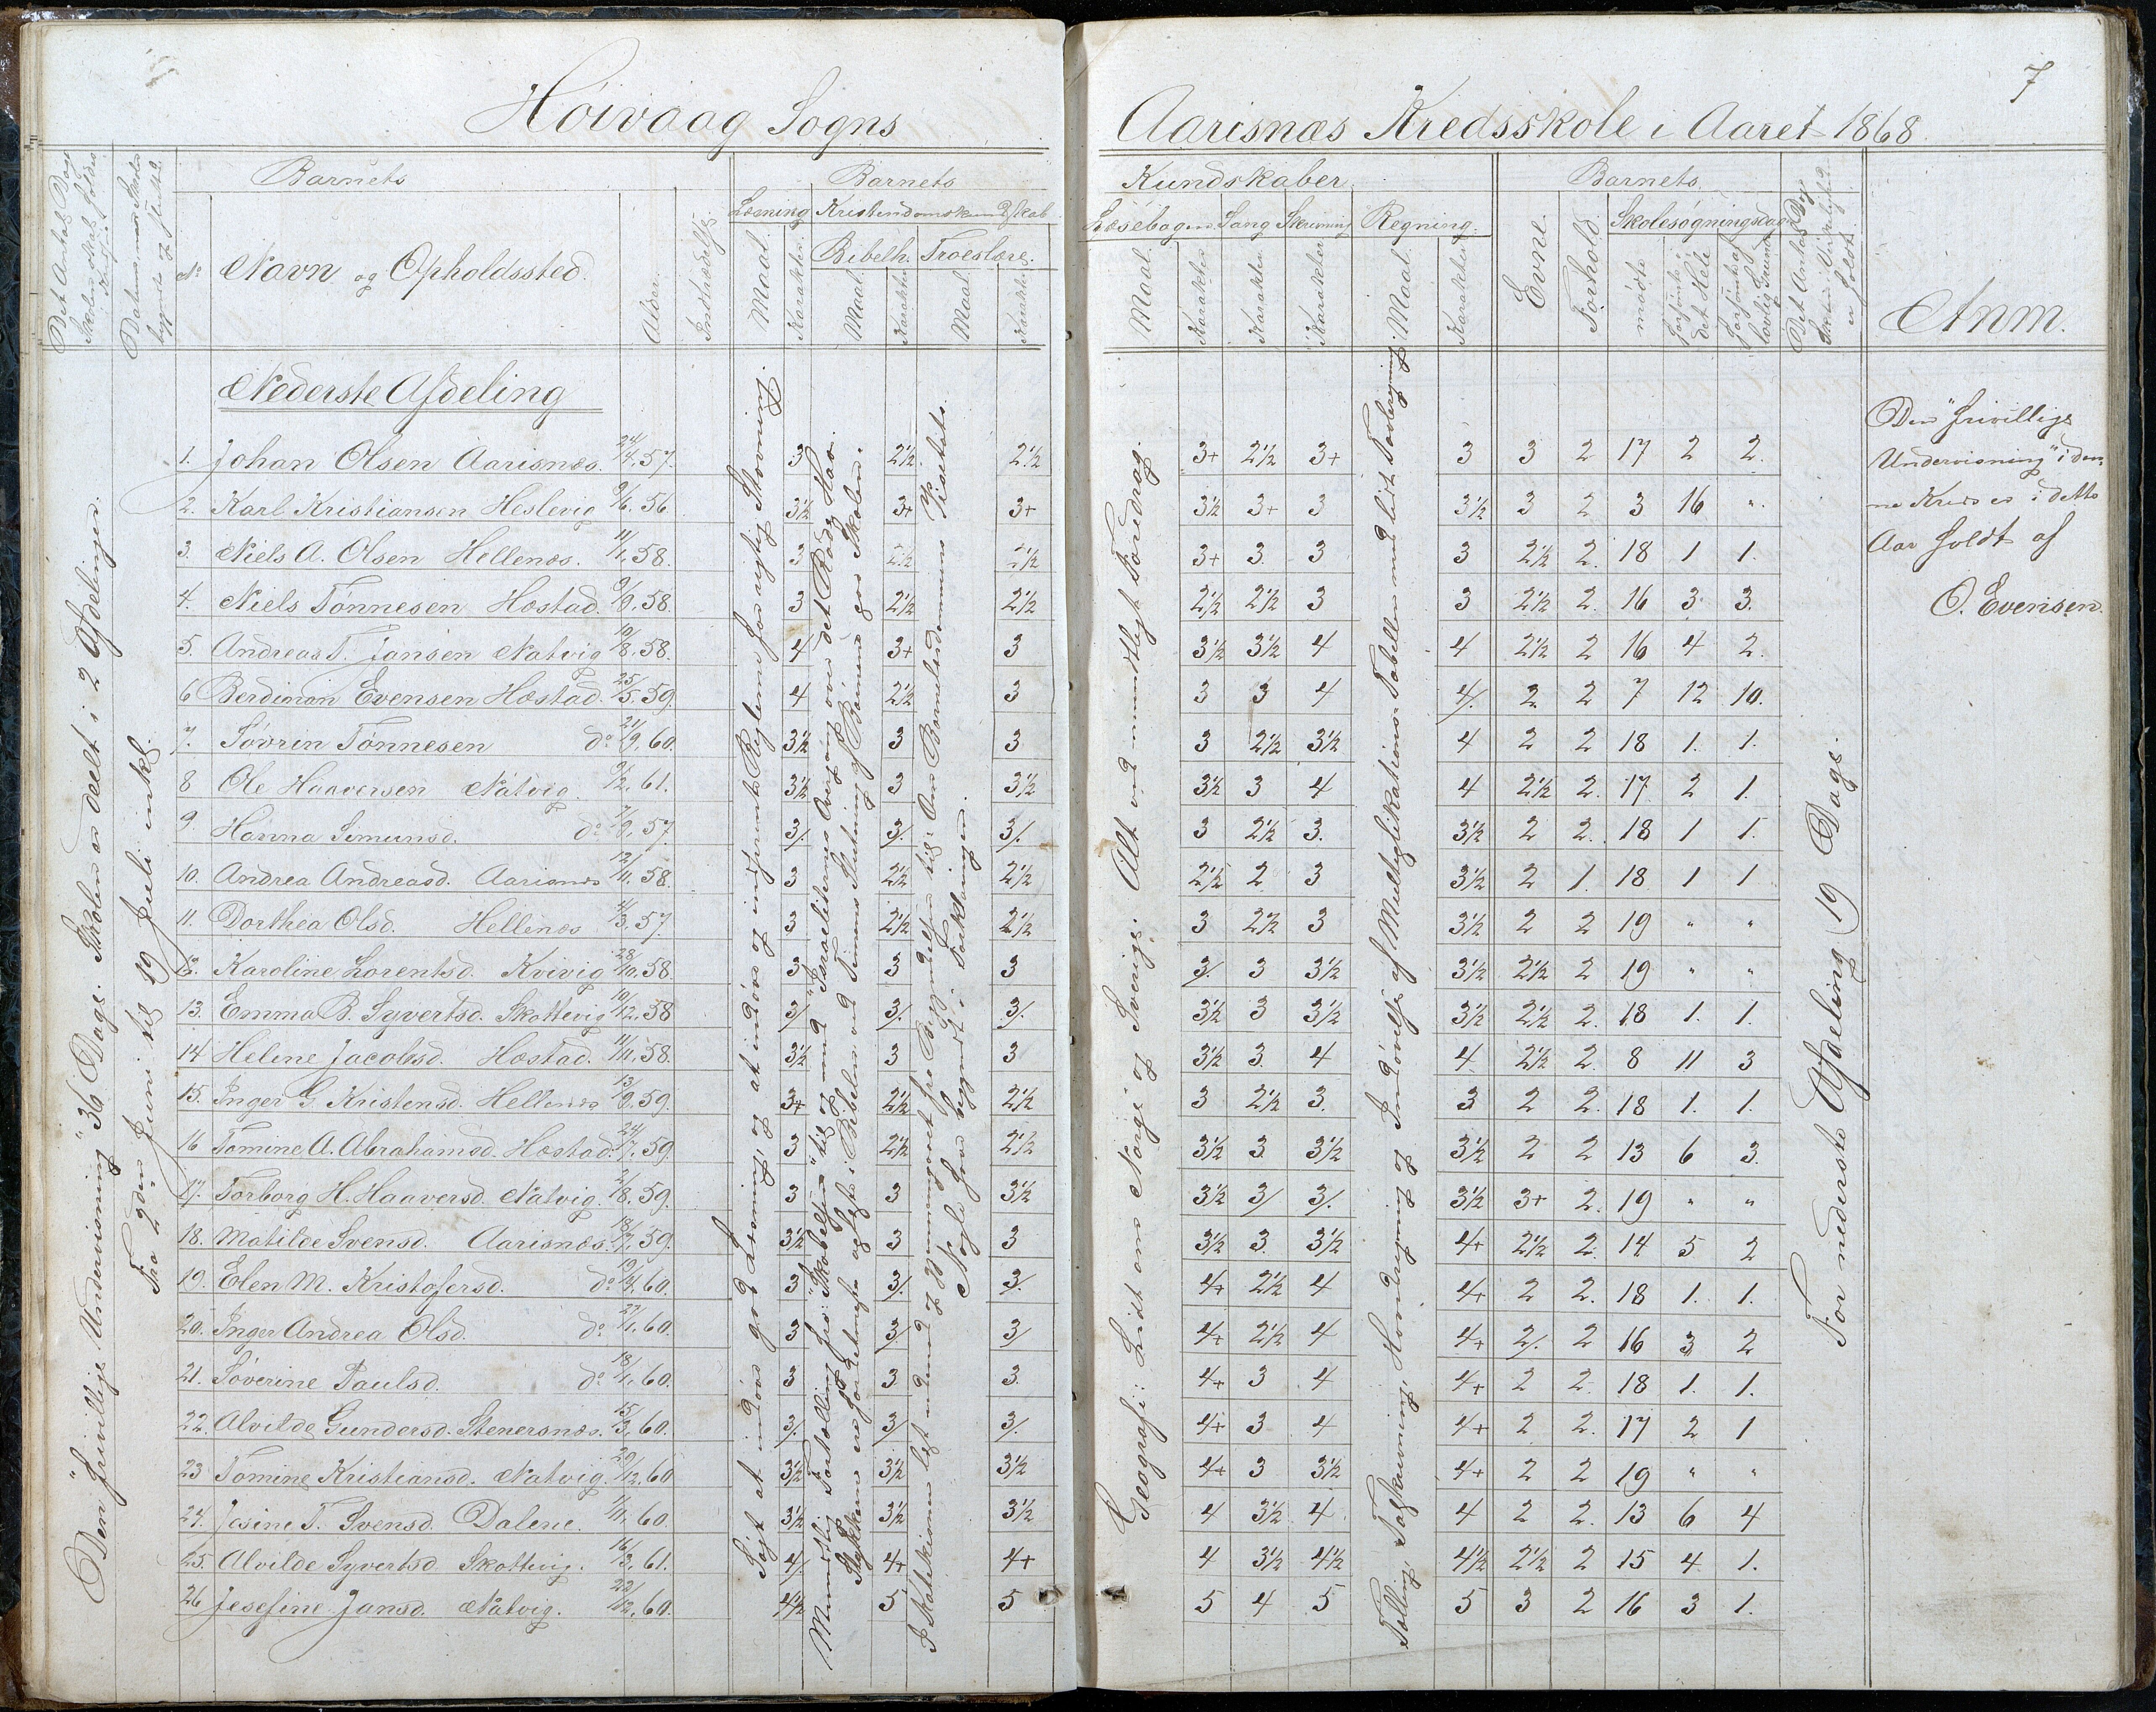 Høivaag Sogns
Aarisnæs Kredsskole i Aaret 1868.
7
Det Antal Dage Skolen skal holdes i Kredsen
Datum, naar Skolen begynte og sluttede.
Barnets
No
Navn og Opholdssted.
Alder.
Indtrædelse
Barnets
Læsning
Kristendomskundskab
Maal.
Karakter.
Bibelh.
Troeslære.
Maal.
Karakter
Maal.
Karakter.
Kundskaber.
Læsebogen
Sang
Skrivning
Regning.
Maal.
Karakter
Karakter
Karakter
Maal.
Karakter
Barnets
Evne.
Forhold.
Skolesøgningsdage
mødte
forsømte i det Hele
forsømte af lovlig Grund
Det Antal Dage Skolen i Virkeligheden er holdt
Anm.
Den "frivillige Undervisning" 36 Dage. Skolen er deelt i 2 Afdelinger.
Fra 2den Juni til 19 Juli inkl.
Nederste Afdeling
1. Johan Olsen Aarisnæs. 24/4, 57. 3 2½ 2½ 3+ 2½ 3+ 3 3 2 17 2 2.
2. Karl Kristiansen Heslevig 9/6, 56 3½ 3+ 3+ 3½ 3+ 3 3½ 3 2 3 16 "
3. Niels A. Olsen Hellenæs. 11/1, 58. 3 2½ 2½ 3+ 3. 3 3 2½ 2. 18 1 1.
4. Niels Tønnesen Hæstad. 9/9, 58. 3 2½ 2½ 2½ 2½ 3 3 2½ 2. 16 3 3.
5. Andreas T. Jansen Natvig 10/8, 58. 4 3+ 3 3½ 3½ 4 4 2½ 2 16 4 2.
6 Berdiman Evensen Hæstad. 25/5, 59. 4 2½ 3 3 3 4 4/. 2 2 7 12 10.
7. Søvrin Tønnesen do 21/9, 60. 3½ 3 3 3 2½ 3½ 4 2 2 18 1. 1.
8 Ole Haaversen Natvig. 9/2, 61. 3½ 3 3½ 3½ 3 4 4 2½ 2. 17 2 1.
9 Hanna Simunsd. do 7/9, 57. 3/. 3/. 3/. 3 2½ 3. 3½ 2 2. 18 1 1.
10. Andrea Andreasd. Aarisnæs 12/11, 58. 3 2½ 2½ 2½ 2 3 3½ 2 1. 18 1 1
11. Dorthea Olsd. Hellenæs 4/3, 57. 3 2½ 2½ 3 2½ 3 3½ 2 2 19 " "
12. Karoline Lorentsd. Kvivig 28/10, 58. 3 3 3 3/. 3 3½ 3½ 2½ 2 19 " "
13. Emma B. Syvertsd. Skottevig 10/12, 58 3/. 3/. 3/. 3½ 3 3½ 3½ 2½ 2. 18 1. 1.
14 Helene Jacobsd. Hæstad. 11/11, 58. 3½ 3 3 3½ 3. 4 4 2½ 2. 8 11 3
15. Inger G. Kristensd. Hellenæs 13/9, 59. 3+ 2½ 2½ 3 2½ 3. 3 2 2. 18 1. 1.
16 Tomine A. Abrahamsd. Hæstad. 24/7, 59. 3 2½ 2½ 3½ 3. 3½ 3½ 2 2 13 6 3.
17. Torborg H. Haaversd. Natvig. 2/8, 59. 3 3 3½ 3½ 3/ 3/. 3½ 3+ 2. 19 " "
18. Matilde Svensd. Aarisnæs. 18/7, 59. 3½ 3 3 3½ 3. 3½ 4+ 2½ 2. 14 5 2
19. Elen M. Kristofersd. do 19/4, 60. 3 3/. 3/. 4+ 2½ 4 4+ 2 2. 18 1. 1.
20. Inger Andrea Olsd. do 27/1, 60. 3 3/. 3/ 4+ 2½ 4 4+ 2/. 2 16 3 2
21. Søverine Paulsd. do 18/1, 60. 3 3 3. 4+ 3 4 4+ 2 2. 18 1. 1.
22. Alvilde Gundersd. Stenersnæs. 15/3, 60. 3/. 3/ 3/. 4+ 3 4 4+ 2 2. 17 2 1
23 Tomine Kristiansd. Natvig. 20/12, 60 3½ 3½ 3½ 4+ 3 3½ 4+ 2 2 19 " "
24. Jesine T. Svensd. Dalene. 1/11, 60. 3½ 3½ 3½ 4 3½ 4. 4 2 2. 13 6 4
25. Alvilde Syvertsd. Skottevig. 16/3, 61. 4/. 4+ 4+ 4 3½ 4½ 4½ 2½ 2 15 4 1.
26 Josefine Jansd. Natvig. 22/12, 60. 4½ 5 5 5 4 5 5 3 2 16 3 1.
Søgt at indøve god Læsning, og at indøve og indprente Reglerne for rigtig Stavning.
Mundtlig Fortælling fra: "Skabelsen" til og med "Israelitternes Overgang over det Røde Hav.
Stykkerne ere fornemmelig oplæste i Bibelen ved Timens Slutning af Børnene paa Skolen.
I Katekismen lært udenad og gjennemgaaet fra Begyndelsen til: Om Barnedaabens Pligter.
Nogle have begyndt i Forklaringen.
Geografi: Lidt om Norge og Sverige. Alt ved mundtligt Foredrag.
Tælling, Talskrivning, Hovedregning og Indøvelse af Multiplikations-Tabellen med lidt Tavleregning.
For nederste Afdeling 19 Dage.
Den "frivillige
Undervisning" i den-
ne Kreds er i dette
Aar holdt af
O. Evensen.